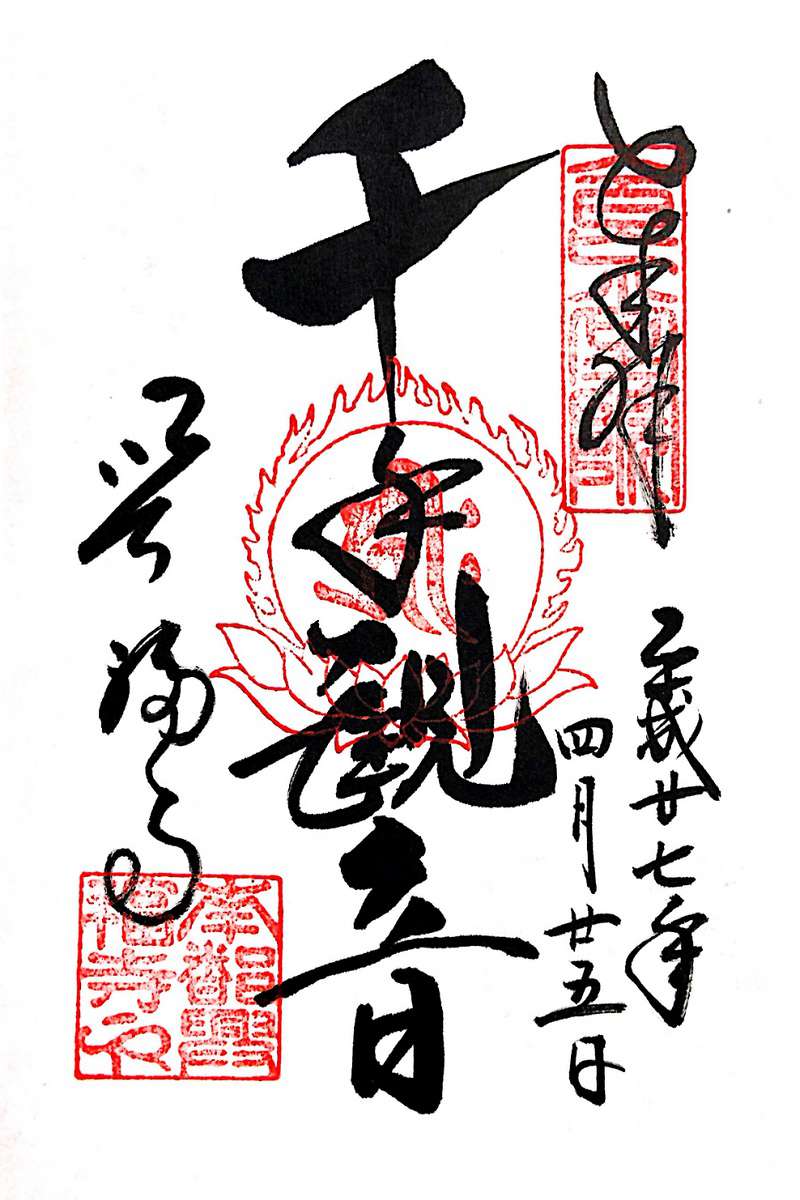 奉拝
平成廿七年
四月廿五日
千手観音
聖福寺
南都聖
福寺印